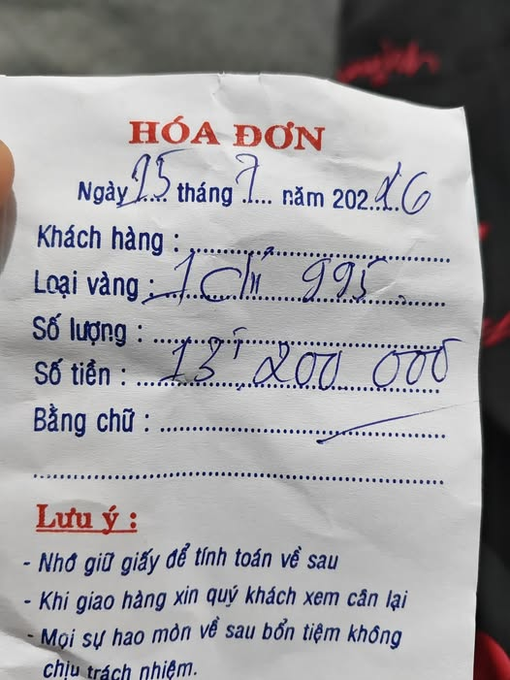 HÓA ĐƠN
Ngày 15 tháng 7 năm 202 26
Khách hàng :
Loại vàng : 1 chỉ 995
Số lượng :
Số tiền : 13, 200 000
Bằng chữ :
Lưu ý :
- Nhớ giữ giấy để tính toán về sau
- Khi giao hàng xin quý khách xem cân lại
- Mọi sự hao mòn về sau bổn tiệm không
chịu trách nhiệm.